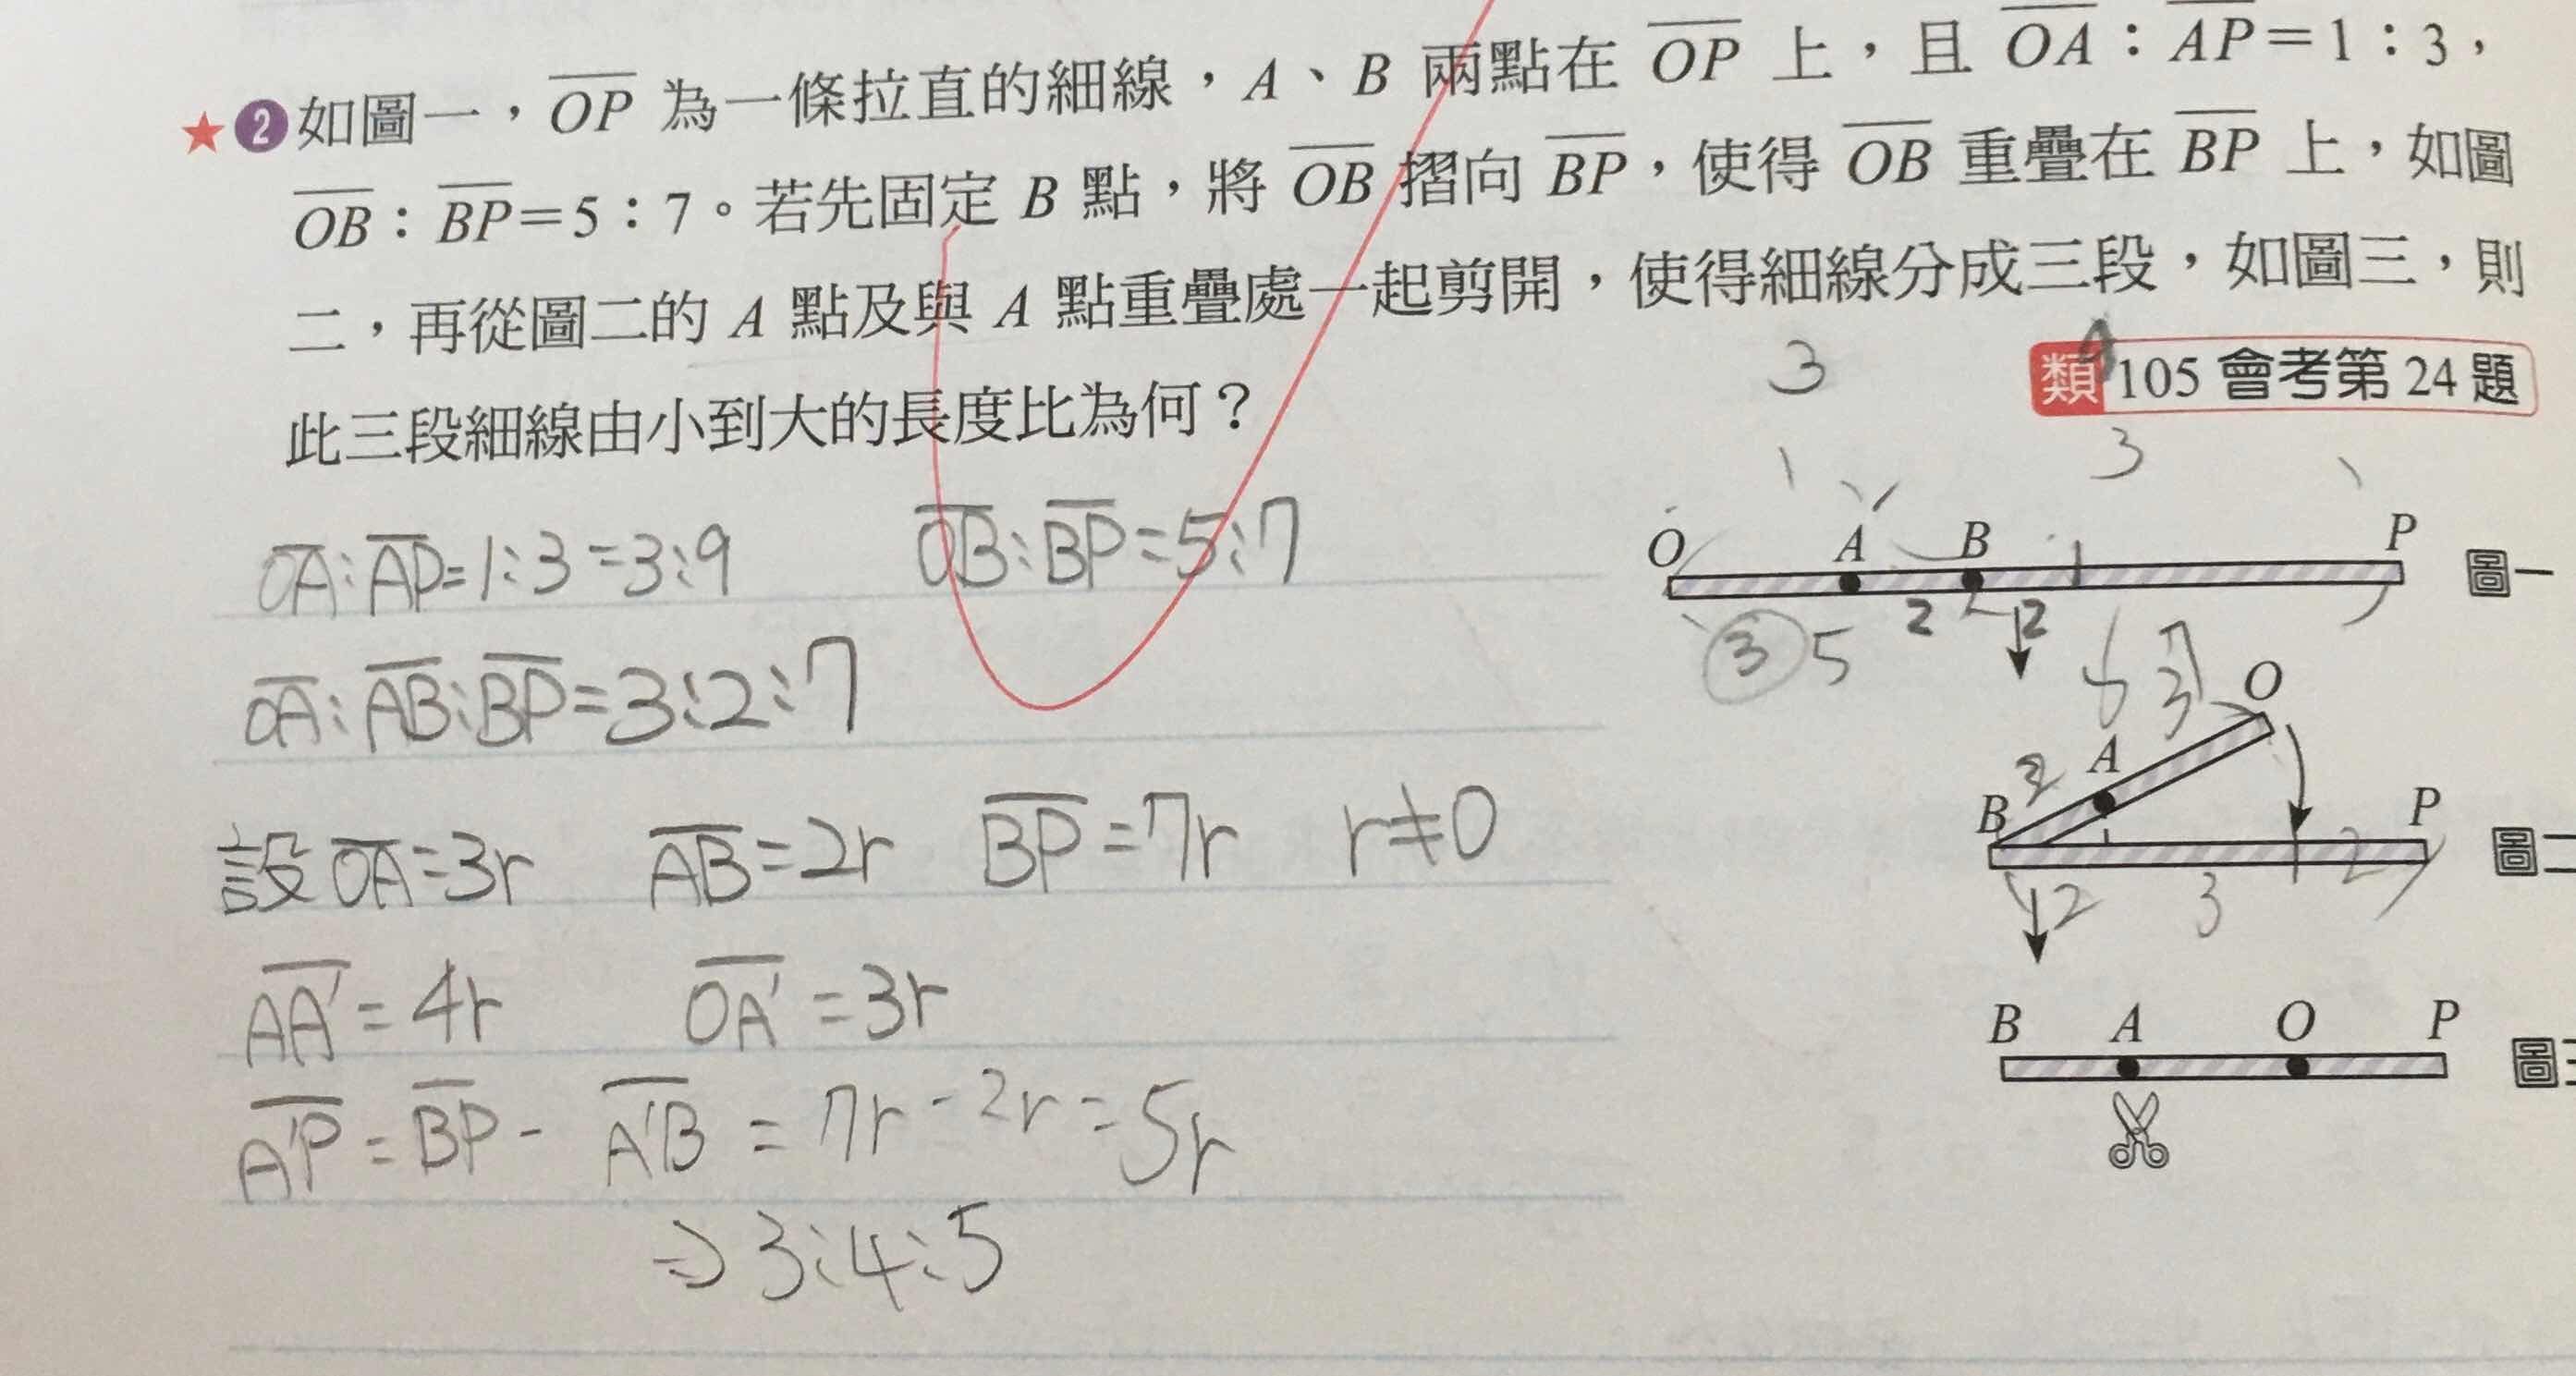 ★❷如圖一，OP 為一條拉直的細線，A、B 兩點在 OP 上，且 OA：AP＝1：3，
OB：BP＝5：7。若先固定 B 點，將 OB 摺向 BP，使得 OB 重疊在 BP 上，如圖
二，再從圖二的 A 點及與 A 點重疊處一起剪開，使得細線分成三段，如圖三，則
此三段細線由小到大的長度比為何？
類105 會考第 24 題
3
1 3
OA:AP=1:3=3:9 OB:BP=5:7
O A B P 圖一
3 5 2 2 7
OA:AB:BP=3:2:7
O
3
2 A
B P 圖二
2 3 2
設OA=3r AB=2r BP=7r r≠0
AA'=4r OA'=3r
B A O P 圖
A'P=BP-A'B=7r-2r=5r
⇒3:4:5